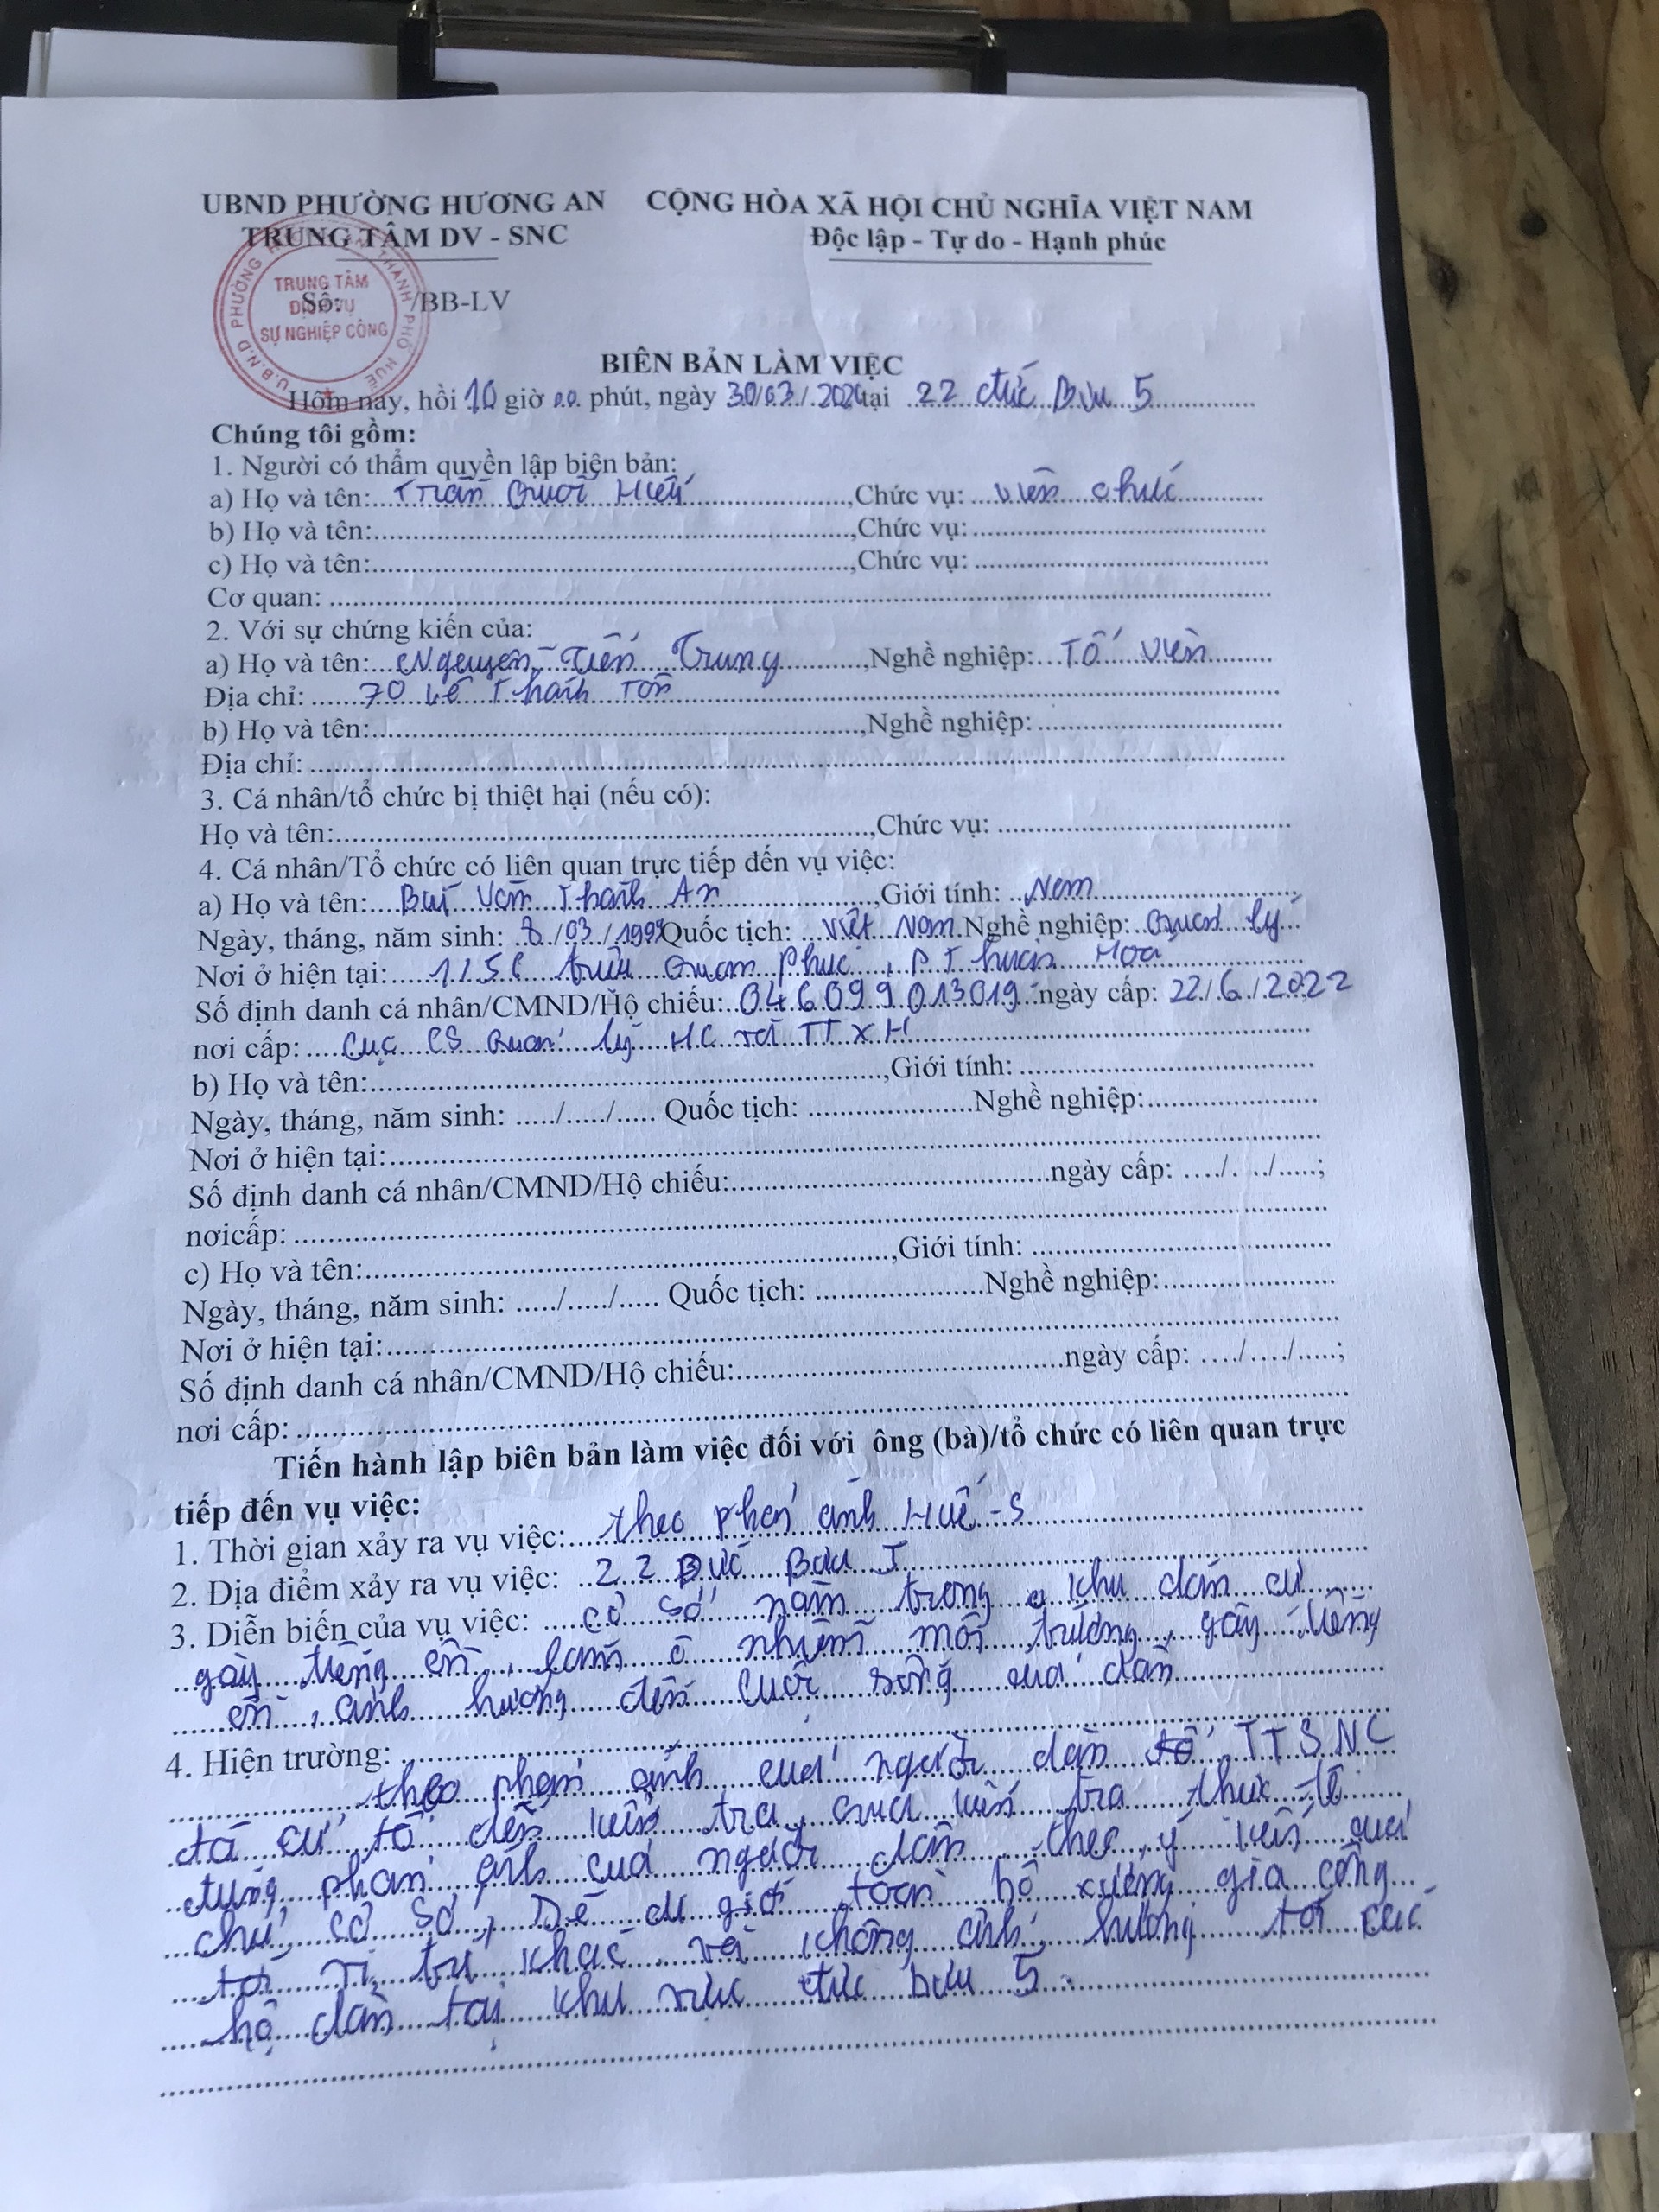 UBND PHƯỜNG HƯƠNG AN CỘNG HÒA XÃ HỘI CHỦ NGHĨA VIỆT NAM
TRUNG TÂM DV - SNC Độc lập - Tự do - Hạnh phúc
TRUNG TÂM
DỊCH VỤ
SỰ NGHIỆP CÔNG
Số: /BB-LV
BIÊN BẢN LÀM VIỆC
Hôm nay, hồi 10 giờ 00 phút, ngày 30/03/2026 tại 22 đức Bưu 5
Chúng tôi gồm:
1. Người có thẩm quyền lập biên bản:
a) Họ và tên: Trần Hiếu, Chức vụ: viên chức
b) Họ và tên:, Chức vụ:
c) Họ và tên:, Chức vụ:
Cơ quan:
2. Với sự chứng kiến của:
a) Họ và tên: Nguyễn Tiến Trung, Nghề nghiệp: Tổ viên
Địa chỉ: 70 Lê Thánh Tôn
b) Họ và tên:, Nghề nghiệp:
Địa chỉ:
3. Cá nhân/tổ chức bị thiệt hại (nếu có):
Họ và tên:, Chức vụ:
4. Cá nhân/Tổ chức có liên quan trực tiếp đến vụ việc:
a) Họ và tên: Bùi Văn Thanh An, Giới tính: Nam
Ngày, tháng, năm sinh: 8/03/1999 Quốc tịch: Việt Nam Nghề nghiệp: Quản lý
Nơi ở hiện tại: Triệu Quang Phục, P Thuận Hoá
Số định danh cá nhân/CMND/Hộ chiếu: 046099013019 ngày cấp: 22/6/2022
nơi cấp: Cục CS Quản lý HC về TTXH
b) Họ và tên:, Giới tính:
Ngày, tháng, năm sinh: ...../...../..... Quốc tịch: Nghề nghiệp:
Nơi ở hiện tại:
Số định danh cá nhân/CMND/Hộ chiếu: ngày cấp: ..../..../.....;
nơicấp:
c) Họ và tên:, Giới tính:
Ngày, tháng, năm sinh: ...../...../..... Quốc tịch: Nghề nghiệp:
Nơi ở hiện tại:
Số định danh cá nhân/CMND/Hộ chiếu: ngày cấp: ..../..../.....;
nơi cấp:
Tiến hành lập biên bản làm việc đối với ông (bà)/tổ chức có liên quan trực
tiếp đến vụ việc:
1. Thời gian xảy ra vụ việc: theo phản ánh Huế-S
2. Địa điểm xảy ra vụ việc: 22 Đức Bưu 5
3. Diễn biến của vụ việc: cơ sở nằm trong khu dân cư
gây tiếng ồn, làm ô nhiễm môi trường, gây tiếng
ồn, ảnh hưởng đến cuộc sống của dân
4. Hiện trường:
theo phản ánh của người dân tổ TTSNC
đã cử tổ đến kiểm tra, qua kiểm tra thực tế
đúng phản ánh của người dân theo ý kiến của
chủ cơ sở, sẽ di giời toàn bộ xưởng gia công
tới vị trí khác và không ảnh hưởng tới các
hộ dân tại khu vực đức bưu 5.